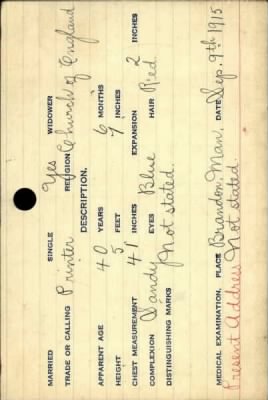 MARRIED SINGLE Yes WIDOWER
TRADE OR CALLING Printer RELIGION Church of England
DESCRIPTION.
APPARENT AGE 40 YEARS 6 MONTHS
HEIGHT 5 FEET 7 INCHES
CHEST MEASUREMENT 41 INCHES EXPANSION 2 INCHES
COMPLEXION Sandy EYES Blue HAIR Red
DISTINGUISHING MARKS Not stated.
MEDICAL EXAMINATION. PLACE Brandon, Man, DATE Sep. 9th 1915
Present Address Not stated.